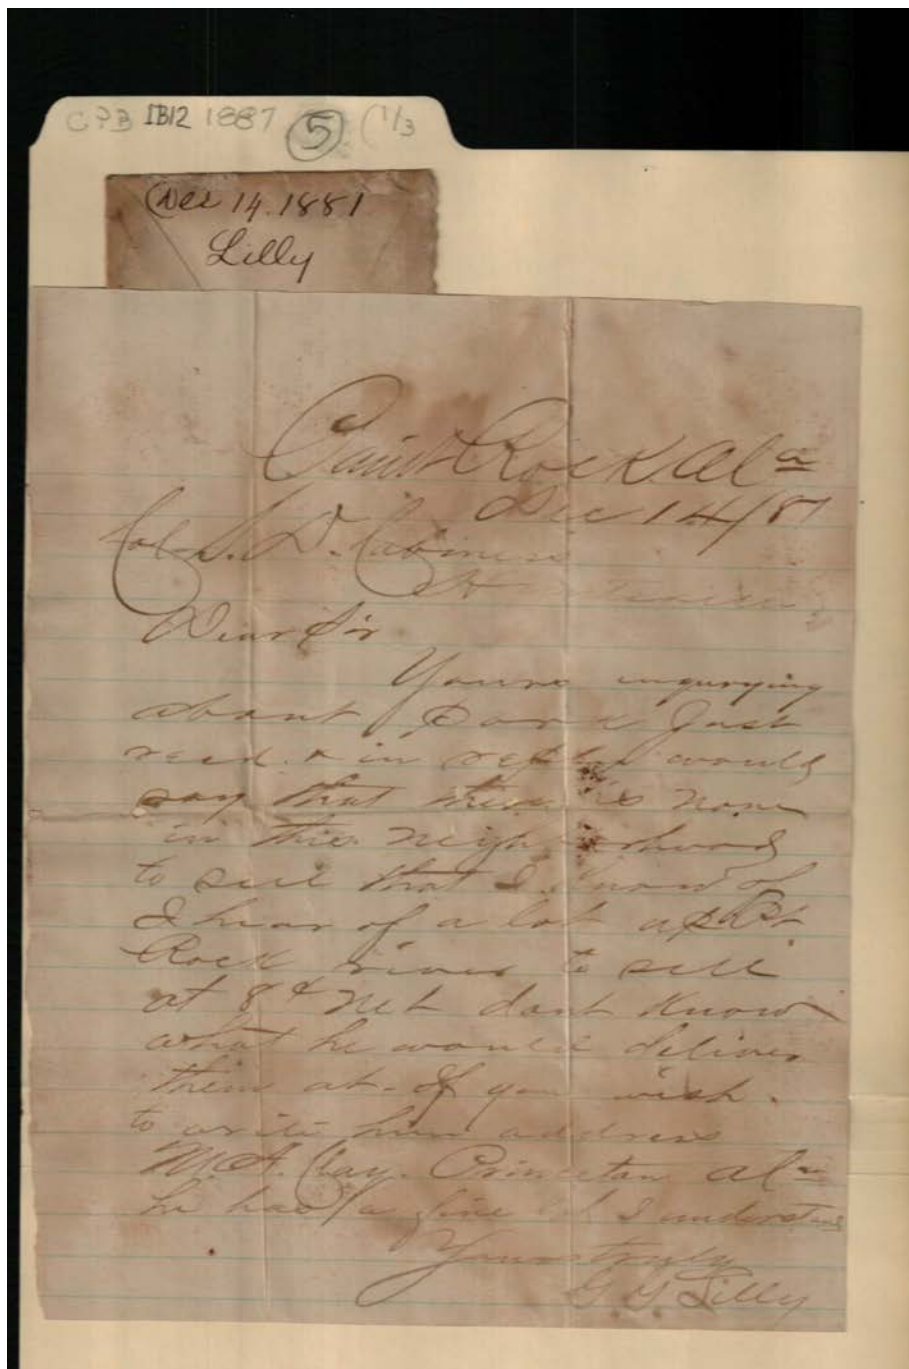 CPB IB12 1887 (5) (1/3
Dec 14. 1881
Lilly
Paint Rock Ala
Dec 14/81
Col S. D. Cabiness
Huntsville
Dear Sir
Yours inqurying
about Pork Just
recd. & in reply would
say that there is none
in this neighborhood
to sell that I know of
I hear of a lot up Pt
Rock river to sell
at 8¢ net dont Know
what he would deliver
them at. If you wish.
to write him address
M. A. Clay. Princeton Ala
he has a fine lot I understand
Yours truly
Lilly